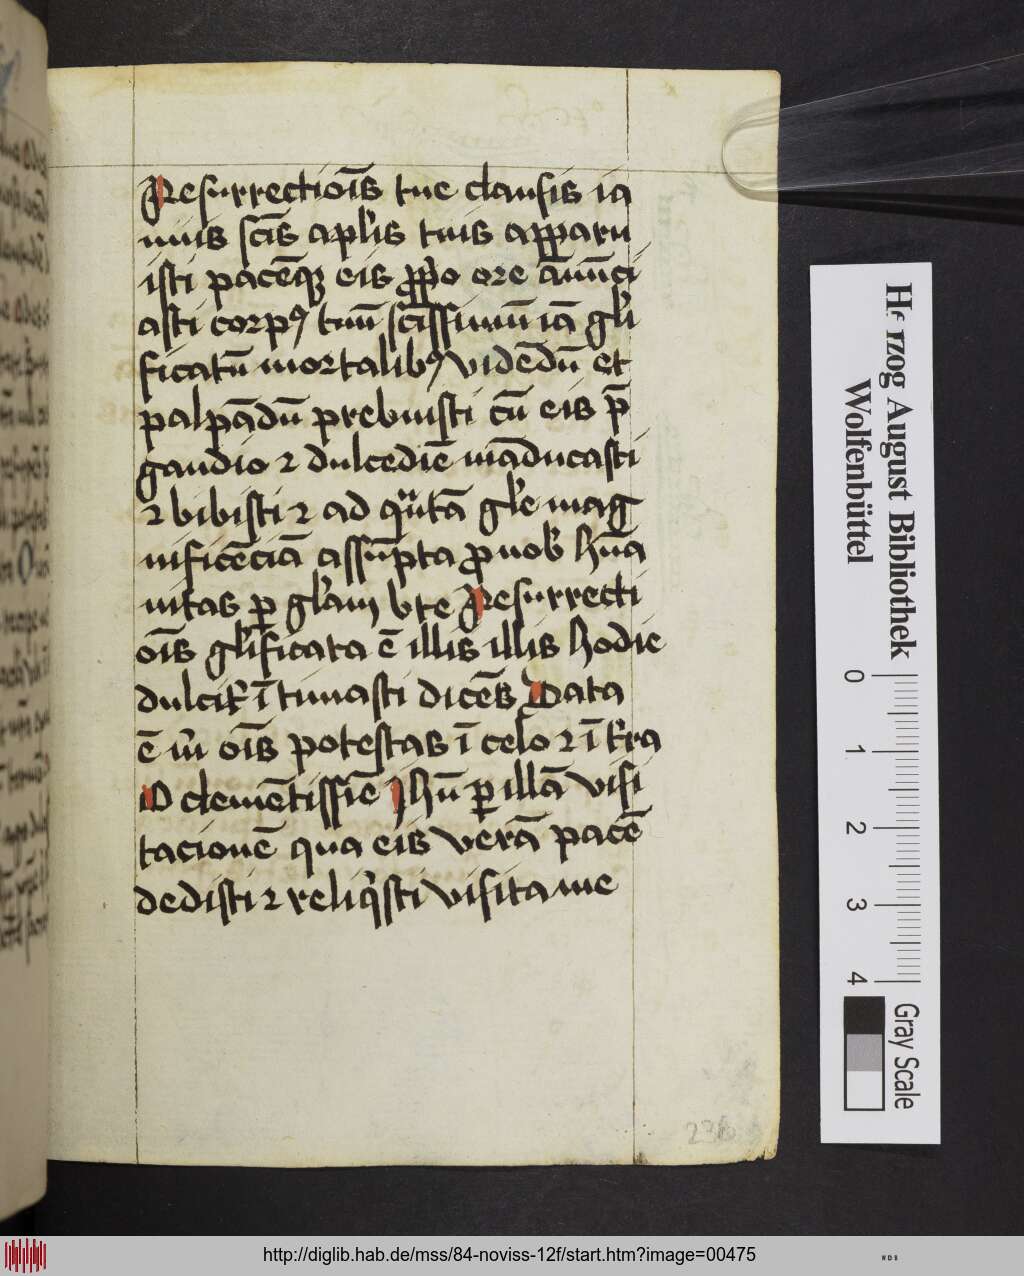 Resurrectiōīs tue clausis ia
nuis sc̄is apl'is tuis apparu
isti pacēq₃ eis p̱p̱o ore ānūci
asti corpꝰ tuū sc̄issimū iā gl'i
ficatū mortalibꝰ vidēdū et
palpādū prebuisti cū eis p̄
gaudio ⁊ dulcedīe māducasti
⁊ bibisti ⁊ ad qͣntā gl'e mag
nificēciā assūpta ꝓ nob' hūa
nitas ꝑ gl'am Resurrecti
oīs gl'ificata ē illis illis hodie
dulcit' ītimasti dicēs Data
ē m̄ oīs potestas ī celo ⁊ ī t'ra
O clemētissīe Jhū ꝑ illā visi
tacionē qua eis verā pacē
dedisti ⁊ reliqͥsti visita me
236
Herzog August Bibliothek
Wolfenbüttel
0 1 2 3 4
Gray Scale
http://diglib.hab.de/mss/84-noviss-12f/start.htm?image=00475